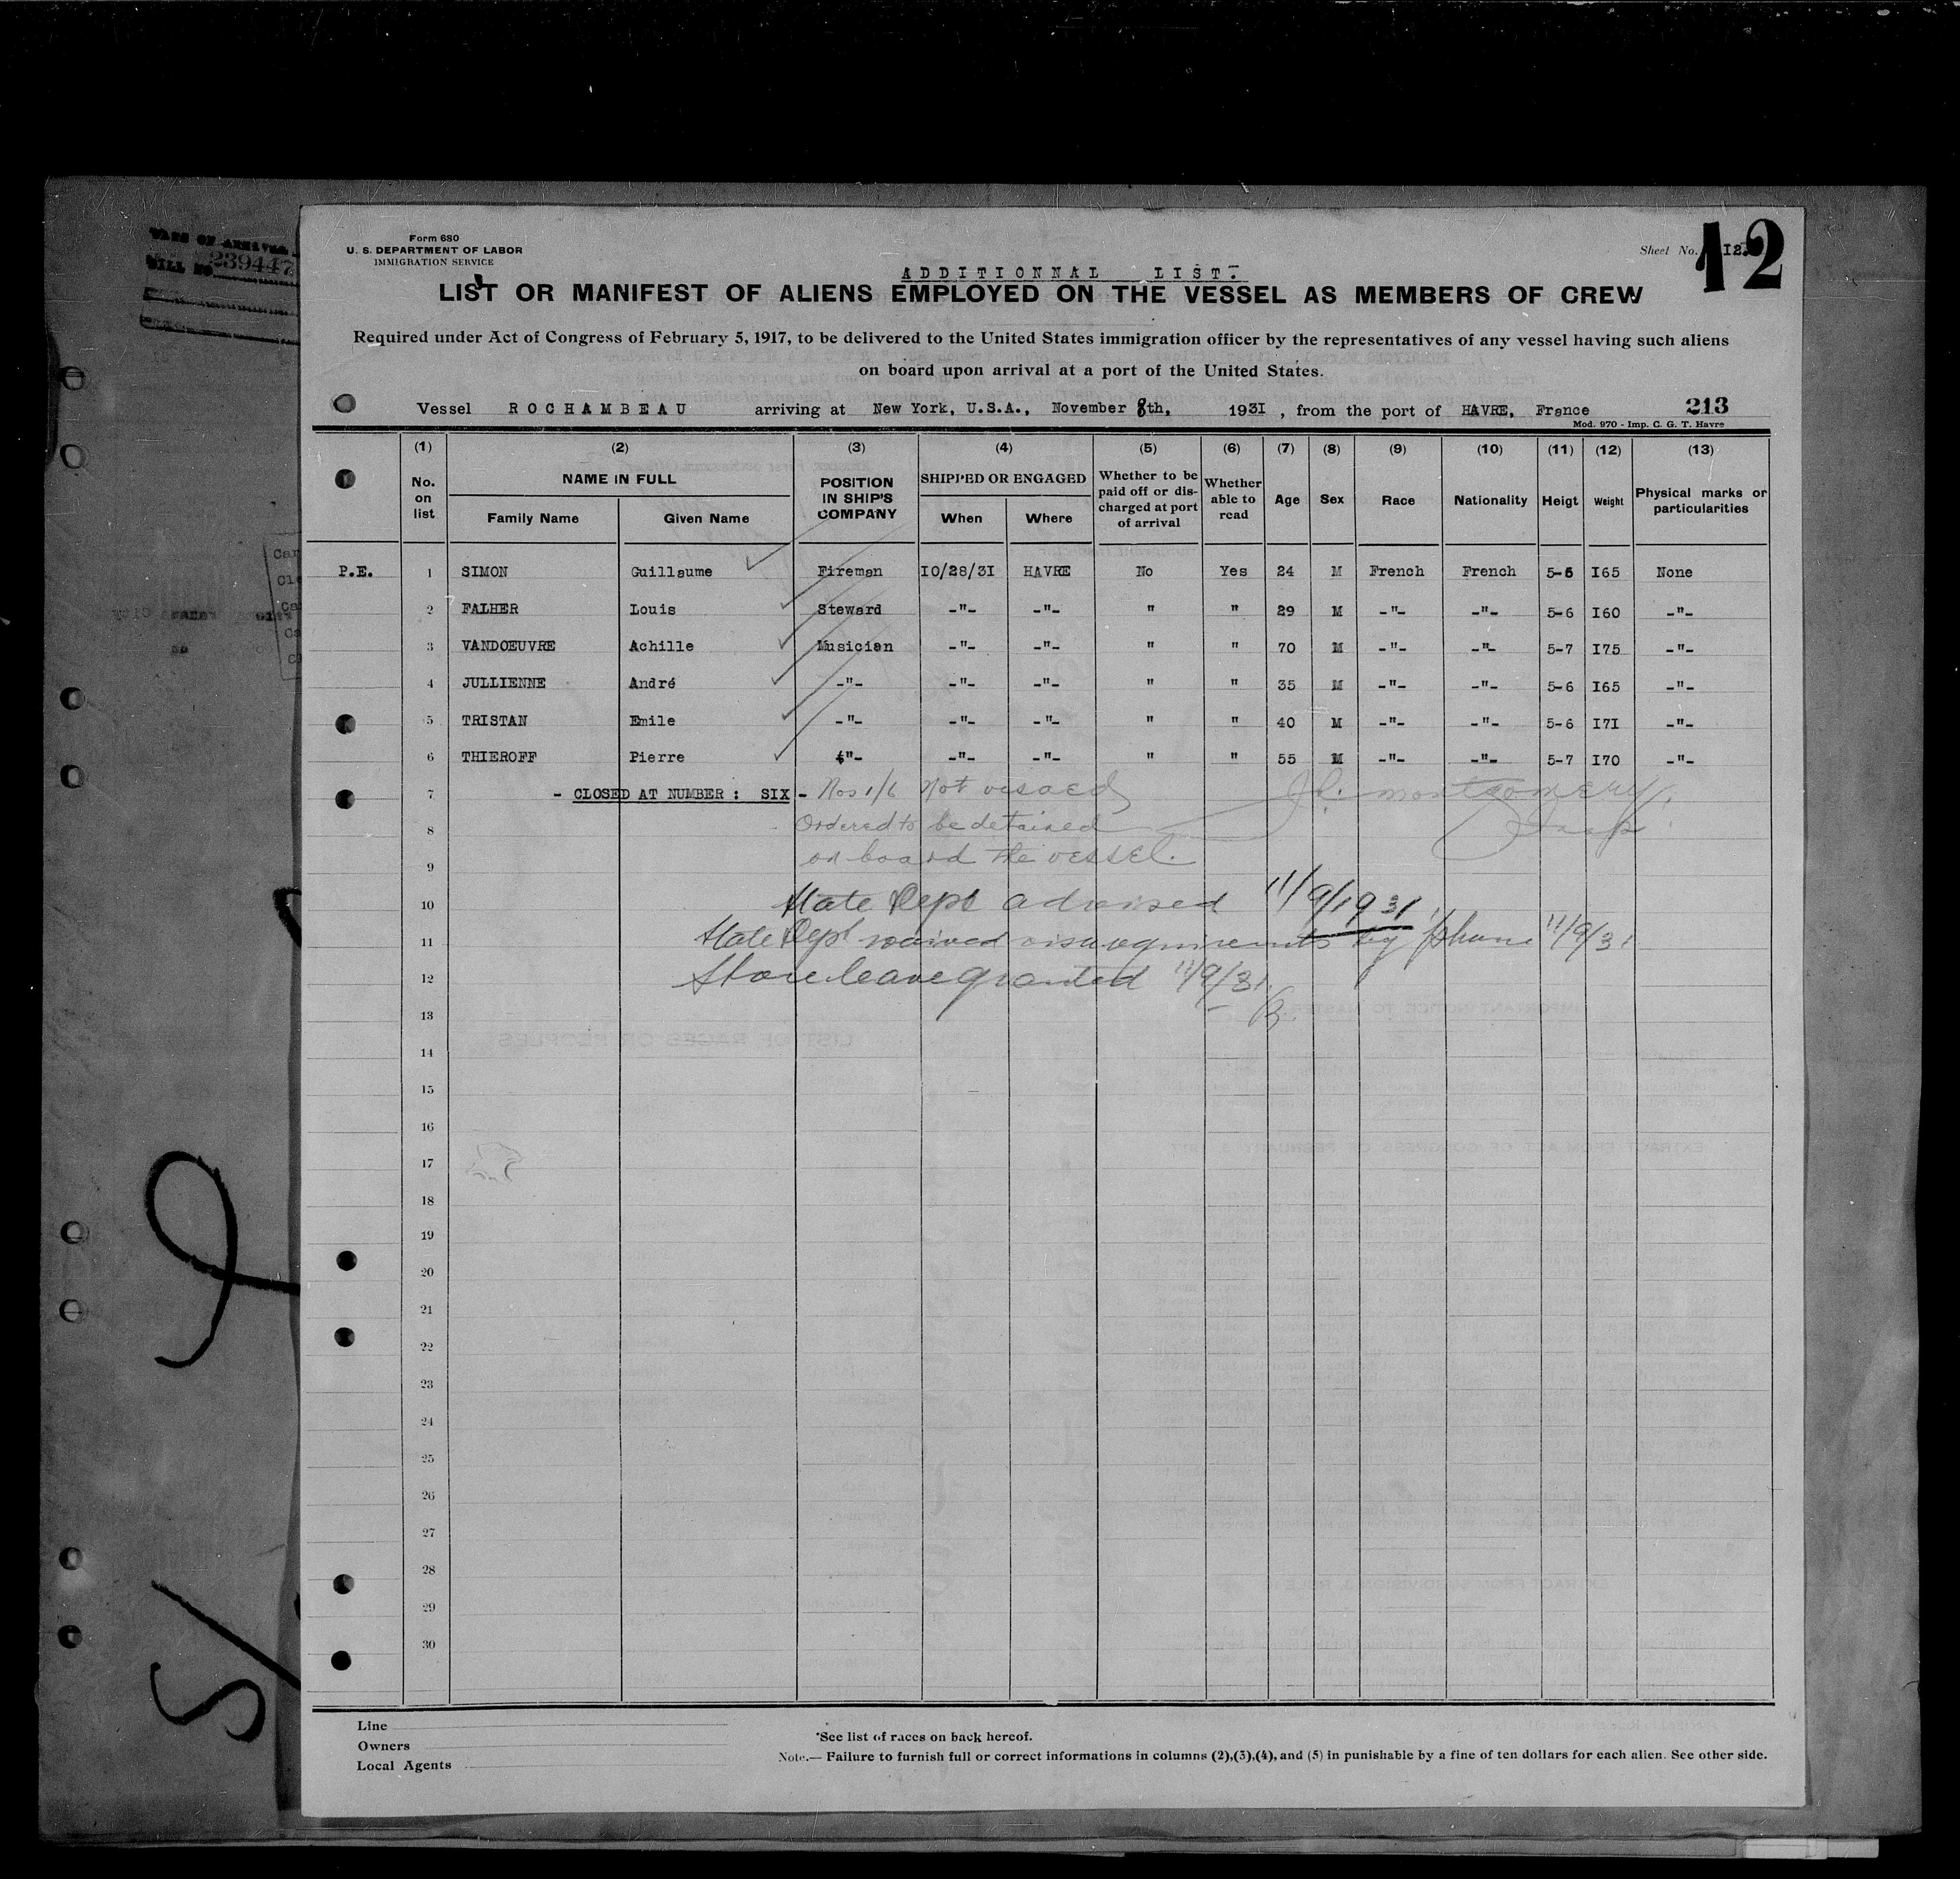 Form 680
U. S. DEPARTMENT OF LABOR
IMMIGRATION SERVICE
Sheet No. I2.
12
239447
ADDITIONNAL LIST.
LIST OR MANIFEST OF ALIENS EMPLOYED ON THE VESSEL AS MEMBERS OF CREW
Required under Act of Congress of February 5, 1917, to be delivered to the United States immigration officer by the representatives of any vessel having such aliens
on board upon arrival at a port of the United States.
Vessel ROCHAMBEAU arriving at New York, U.S.A., November 8th, 1931, from the port of HAVRE, France 213
Mod. 970 - Imp. C. G. T. Havre
(1) (2) (3) (4) (5) (6) (7) (8) (9) (10) (11) (12) (13)
No. on list NAME IN FULL Family Name Given Name POSITION IN SHIP'S COMPANY SHIPPED OR ENGAGED When Where Whether to be paid off or discharged at port of arrival Whether able to read Age Sex Race Nationality Heigt Weight Physical marks or particularities
P.E. 1 SIMON Guillaume Fireman I0/28/3I HAVRE No Yes 24 M French French 5-6 I65 None
2 FALHER Louis Steward -"- -"- " " 29 M -"- -"- 5-6 I60 -"-
3 VANDOEUVRE Achille Musicien -"- -"- " " 70 M -"- -"- 5-7 I75 -"-
4 JULLIENNE André -"- -"- -"- " " 35 M -"- -"- 5-6 I65 -"-
5 TRISTAN Emile -"- -"- -"- " " 40 M -"- -"- 5-6 I7I -"-
6 THIEROFF Pierre "- -"- -"- " " 55 M -"- -"- 5-7 I70 -"-
7 - CLOSED AT NUMBER : SIX - Nos 1/6 Not visaed J.C. Montgomery
8 Ordered to be detained Insp.
9 on board the vessel.
10 State Dept advised 11/9/1931
11 State Dept waived visa requirements by phone 11/9/31
12 Shore leave granted 11/9/31
13
14
15
16
17
18
19
20
21
22
23
24
25
26
27
28
29
30
Line
Owners
Local Agents
*See list of races on back hereof.
Note.— Failure to furnish full or correct informations in columns (2),(3),(4), and (5) in punishable by a fine of ten dollars for each alien. See other side.